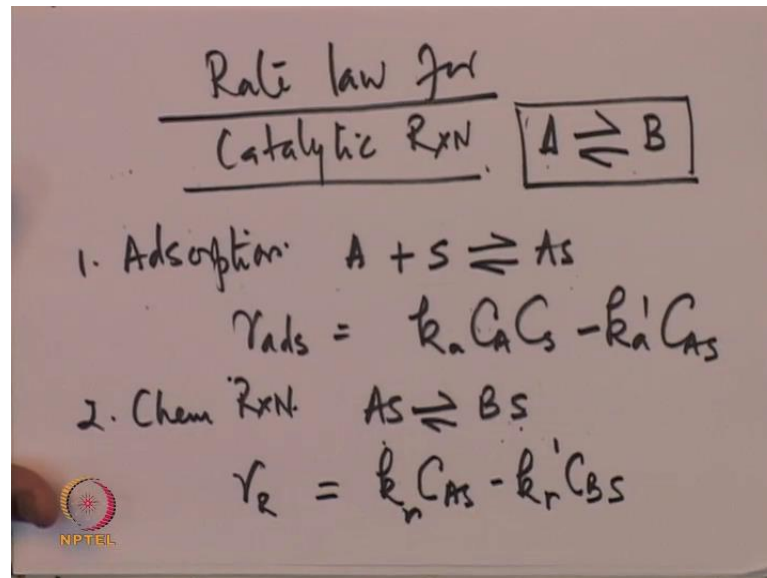 Rate law for
Catalytic RXN. A ⇌ B
1. Adsorption. A + S ⇌ AS
r_ads = k_a C_A C_S - k_a' C_AS
2. Chem RXN. AS ⇌ BS
r_R = k_r C_AS - k_r' C_BS
NPTEL